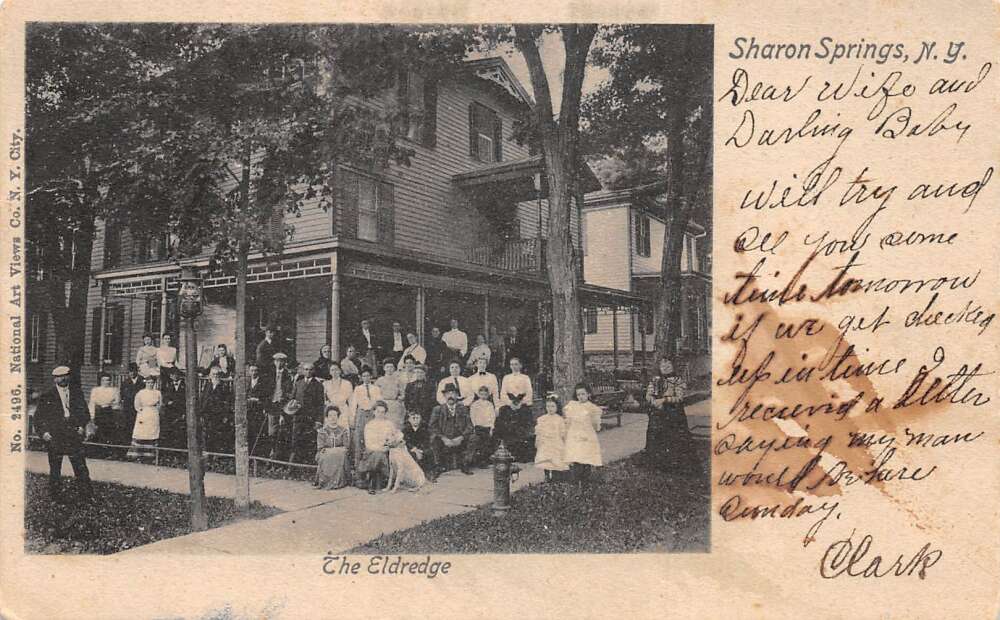 Sharon Springs, N. Y.
Dear Wife and
Darling Baby
Will try and
see you some
time tomorrow
if we get checked
up in time. I
recievid a letter
saying my man
would be here
Sunday.
Clark
The Eldredge
No. 2496. National Art Views Co. N. Y. City.